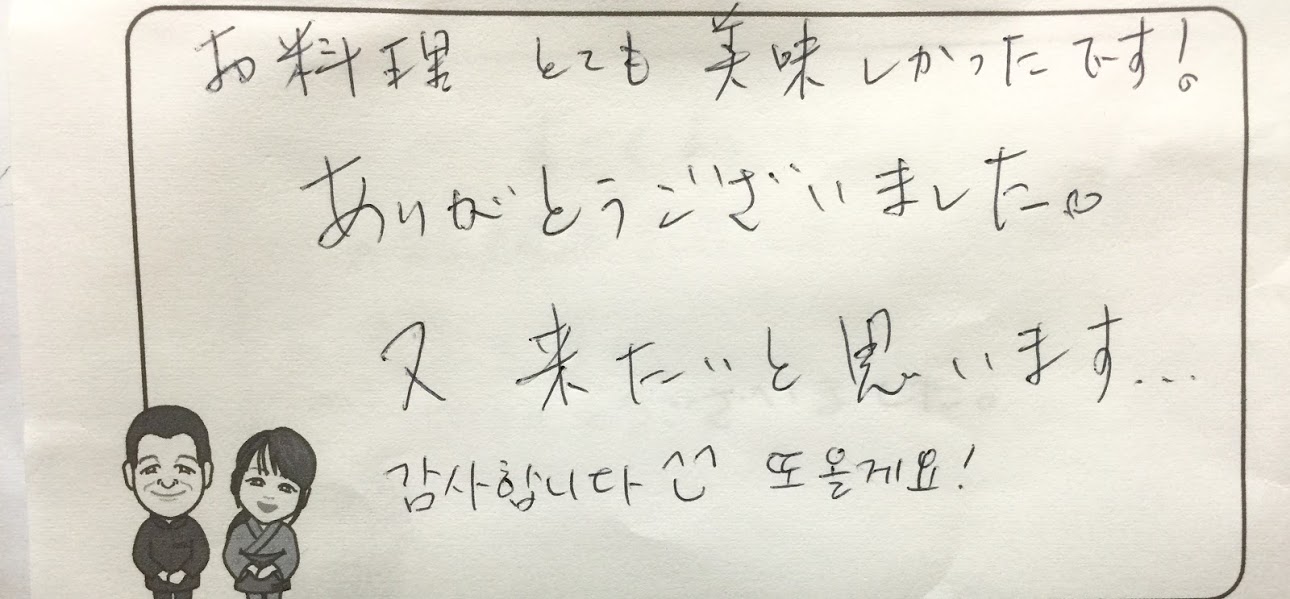 お料理 とても 美味しかったです!
ありがとうございました。
又 来たいと思います...
감사합니다 ^^ 또 올게요!